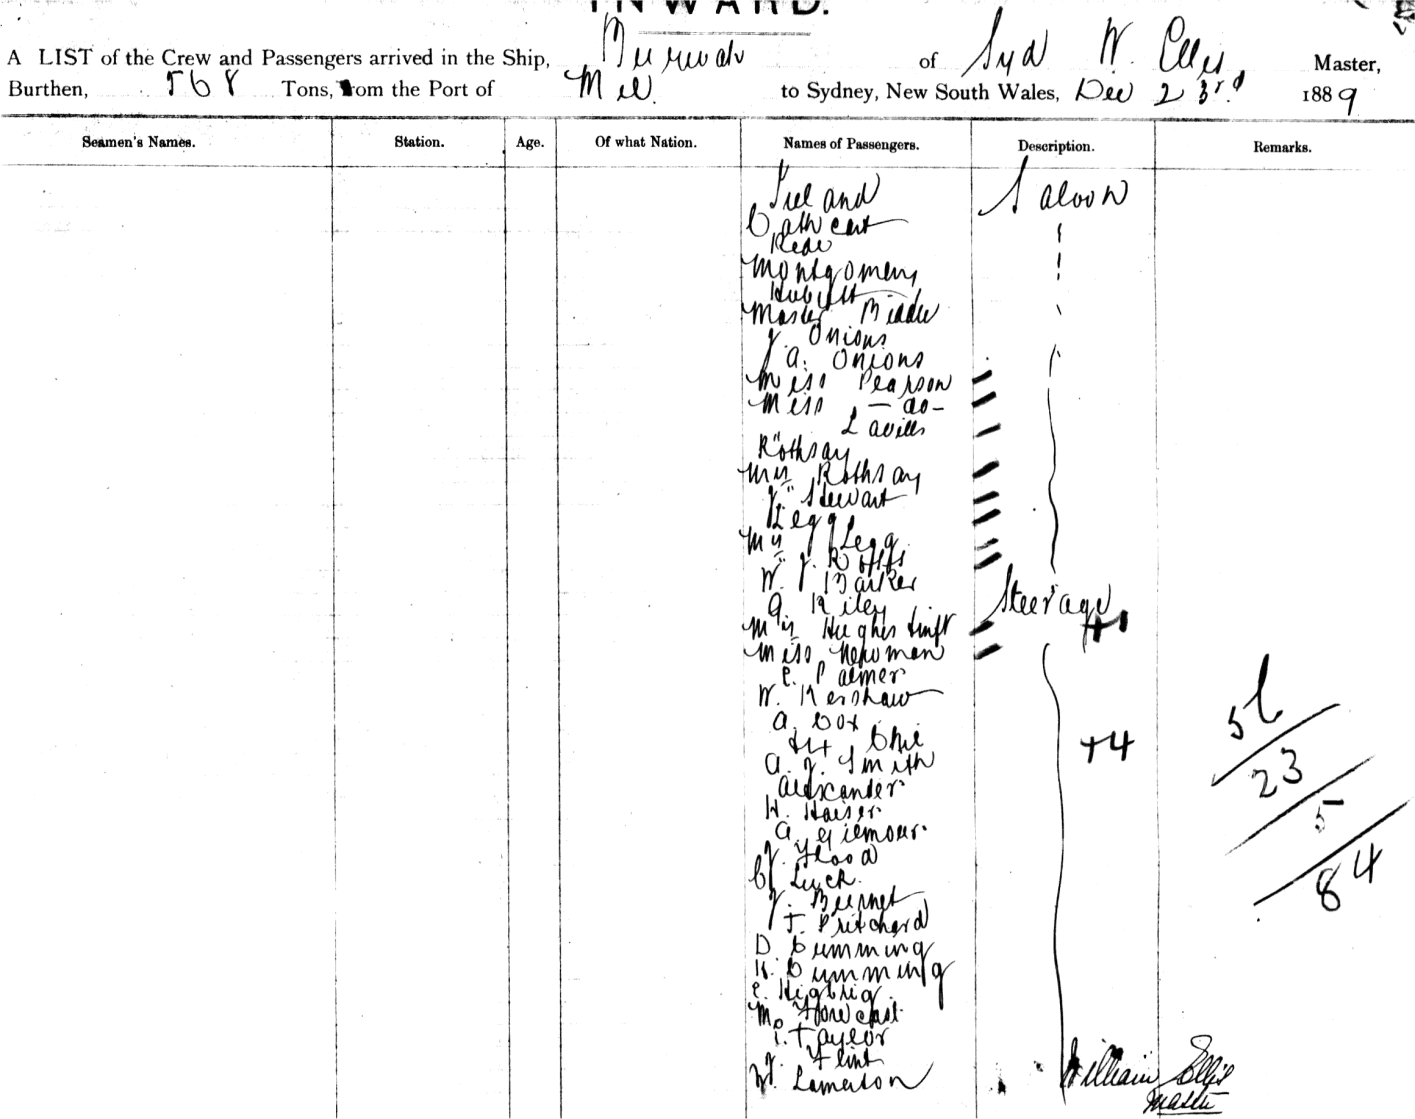 INWARD.
A LIST of the Crew and Passengers arrived in the Ship, Burwah of Syd W. Ellis Master,
Burthen, 568 Tons, from the Port of Mel to Sydney, New South Wales, Dec 23rd 1889
Seamen's Names. Station. Age. Of what Nation. Names of Passengers. Description. Remarks.
Ireland Saloon
Cathcart
Rede
Montgomery
Master
J. Onions
A. Onions
Miss Pearson
Miss — do —
Rothsay
Mrs Rothsay
J. Stewart
Legg
Mrs Legg
W. J. Barker
A. Riley Steerage
Mrs Hughes Inft +1
Miss Newman
E. Palmer
W. Kershaw
A. Cox
+4
A. J. Smith
Alexander
H. Kaiser
A. Gilmour
J. Flood
C. Luck
J. Burnet
T. Pritchard
D. Cumming
K. Cumming
E.
M.
Taylor
J. Flint
W. Lamerton
56
23
5
84
William Ellis
Master